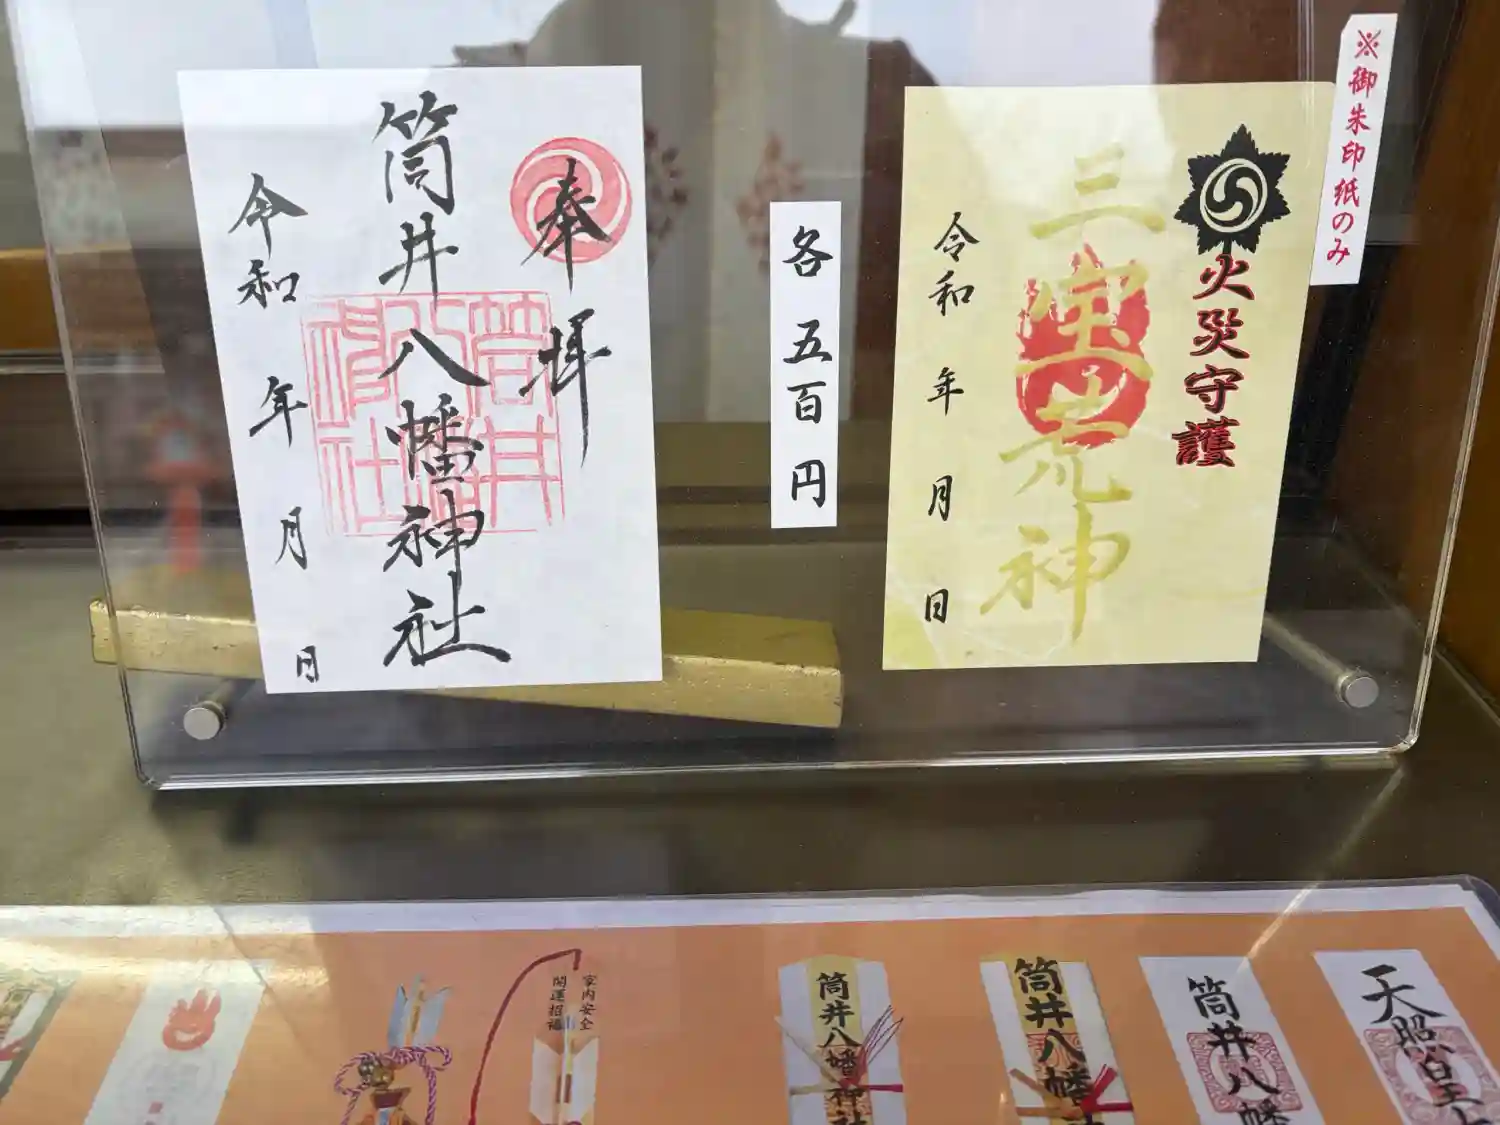 ※御朱印紙のみ
火災守護
三宝荒神
令和 年 月 日
各 五百円
奉拝
筒井八幡神社
令和 年 月 日
天照皇大
筒井八幡
筒井八幡
筒井八幡神社
家内安全
開運招福